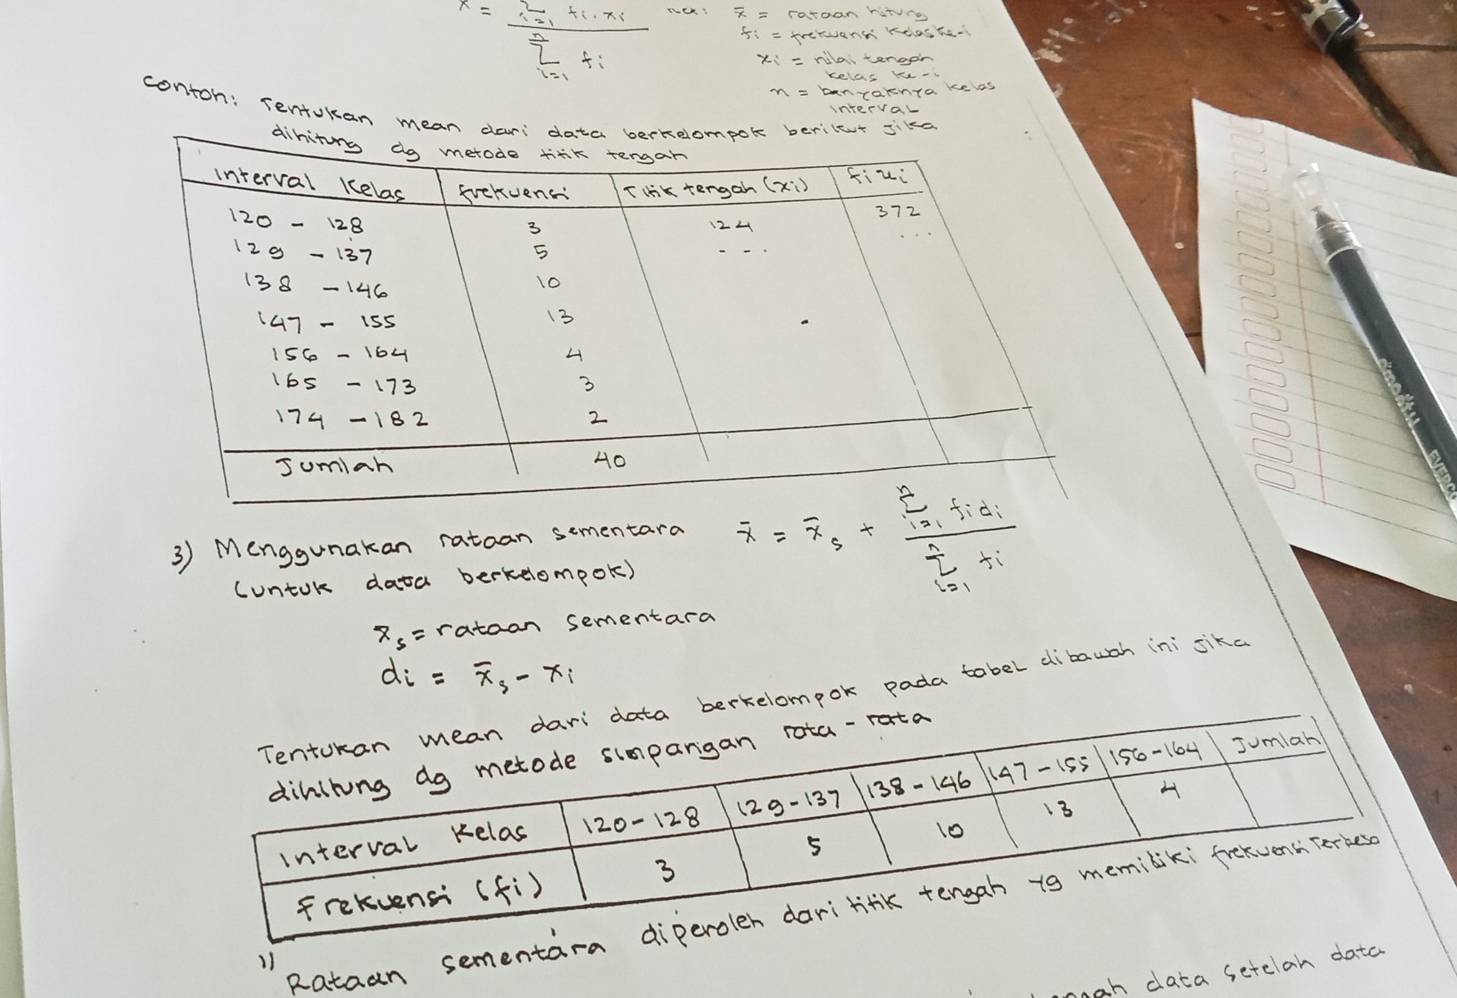 x̄ = Σ i=1 fi . xi / n Σ i=1 fi
x̄ = rataan hitung
fi = frekuensi kelas ke-i
xi = nilai tengah
kelas ke-i
n = banyaknya kelas
interval
Contoh: Tentukan mean dari data berkelompok berikut jika
dihitung dg metode titik tengah
Interval Kelas frekuensi Titik tengah (xi) fixi
120 - 128 3 124 372
129 - 137 5 ... ...
138 - 146 10
147 - 155 13
156 - 164 4
165 - 173 3
174 - 182 2
Jumlah 40
3) Menggunakan rataan sementara x̄ = x̄s + n Σ i=1 fidi / n Σ i=1 fi
(untuk data berkelompok)
x̄s = rataan sementara
di = x̄s - xi
Tentukan mean dari data berkelompok pada tabel dibawah ini jika
dihitung dg metode simpangan rata-rata
Interval Kelas 120-128 129-137 138-146 147-155 156-164 Jumlah
Frekuensi (fi) 3 5 10 13 4
Rataan sementara diperoleh dari titik tengah yg memiliki frekuensi terbesa
data setelah data